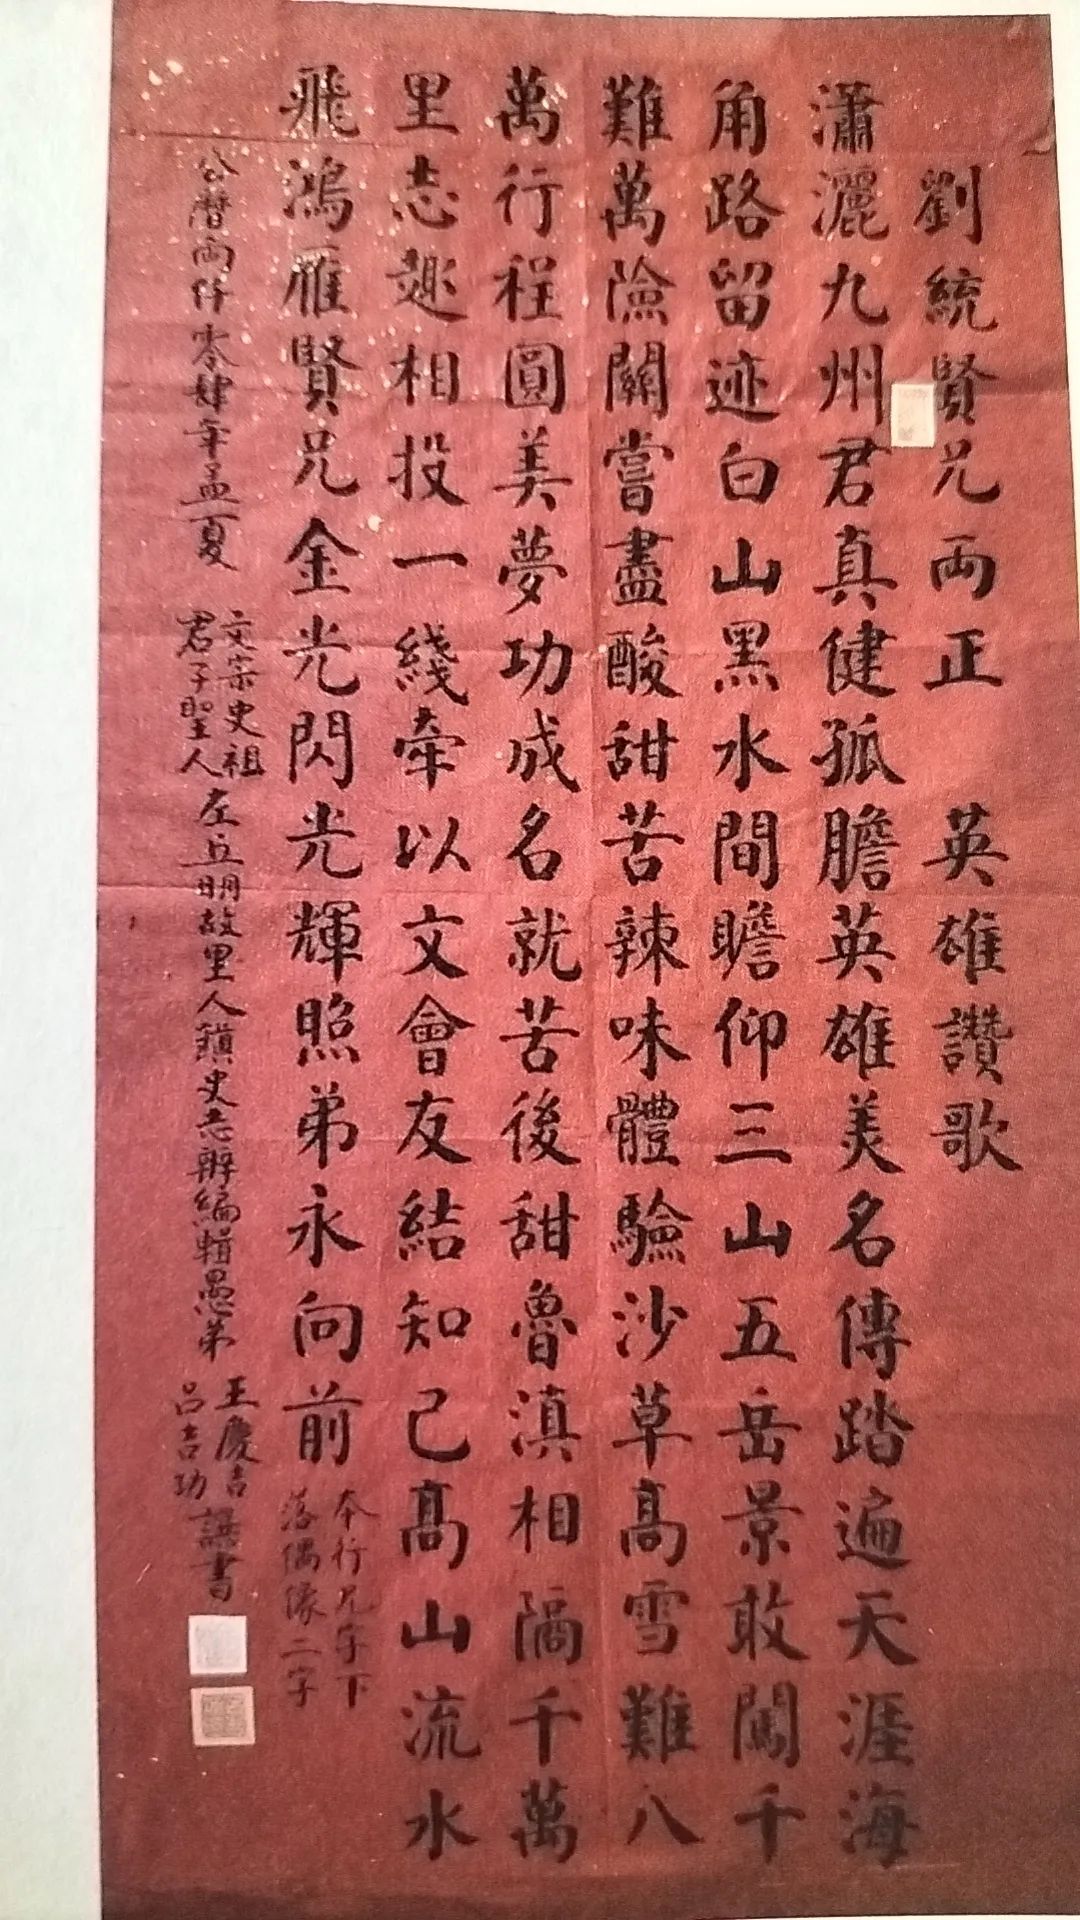 劉統賢兄兩正 英雄讚歌
瀟灑九州君真健孤膽英雄美名傳踏遍天涯海
角路留迹白山黑水間瞻仰三山五岳景敢闖千
難萬險關嘗盡酸甜苦辣味體驗沙草高雪難八
萬行程圓美夢功成名就苦後甜魯滇相隔千萬
里志趣相投一綫牽以文會友結知己高山流水
飛鴻雁賢兄金光閃光輝照弟永向前
本行兄字下
落偶像二字
公曆兩仟零肆年孟夏
文宗史祖
君子聖人
左丘明故里人鎮史志辦編輯愚弟
王慶吉
呂吉功
撰書